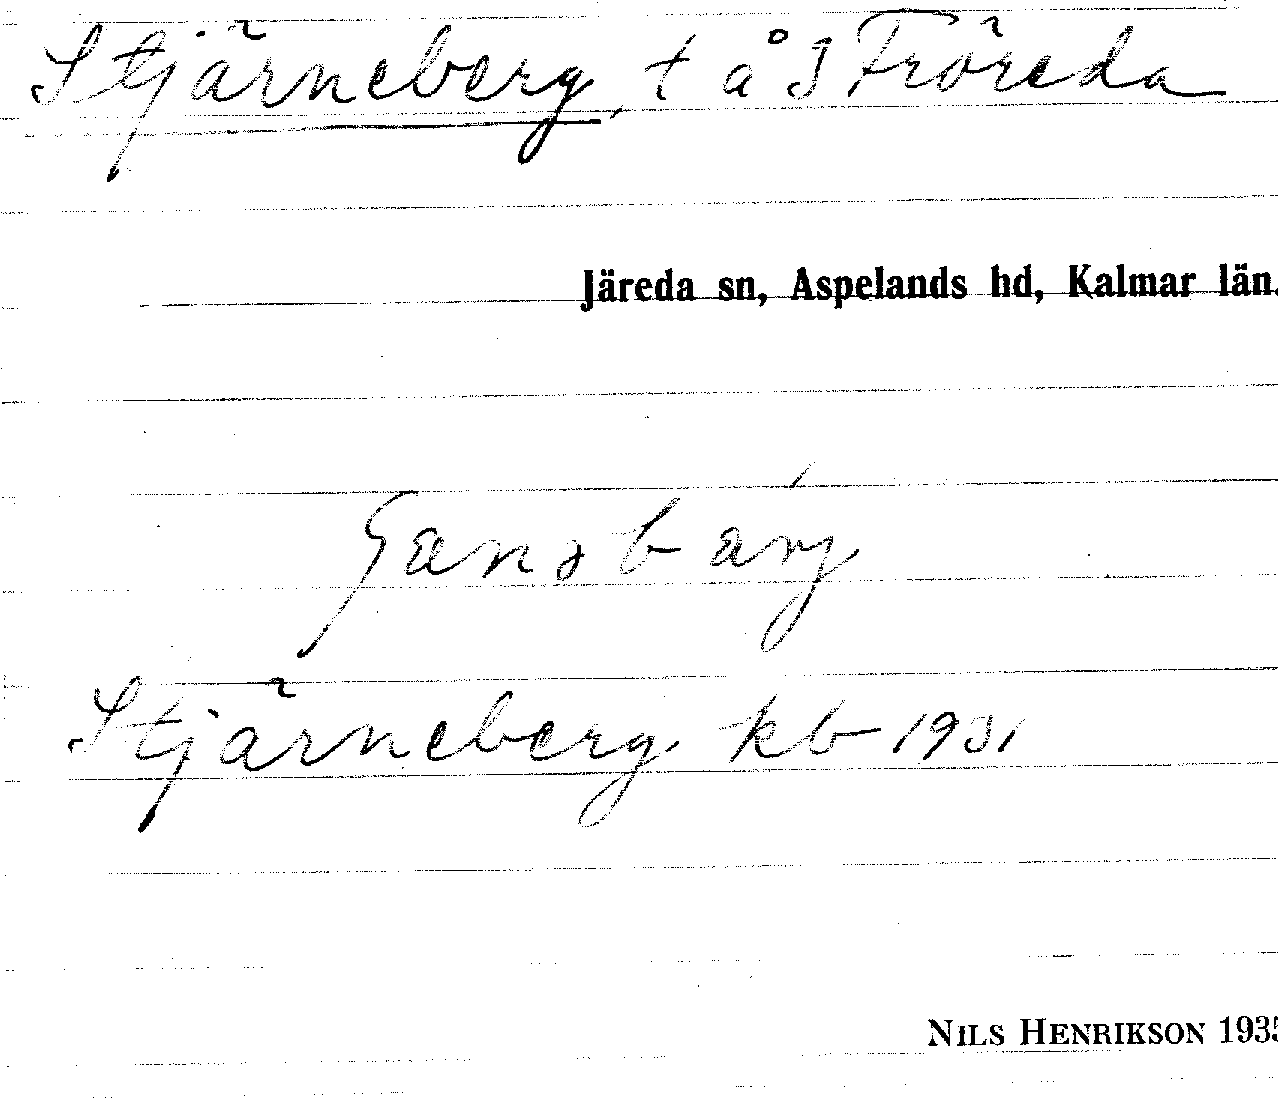 Stjärneberg, t å J Fröreda
Järeda sn, Aspelands hd, Kalmar län.
Stjärneberg kb 1931
NILS HENRIKSON 1935